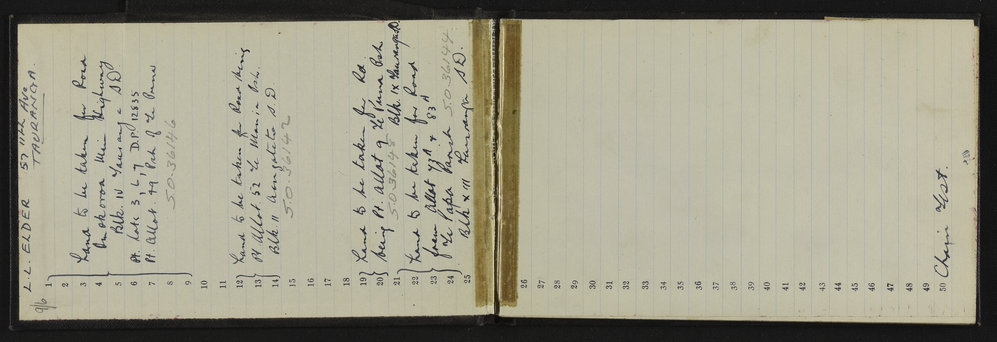 9/6
L.L. ELDER 57 11th Ave
TAURANGA.
1
2
3 Land to be taken for Road
4 Omokoroa Main Highway
5 Blk. IV Tauranga S.D
6 Pt. Lots 3, 6, 7 D.P. 12835
7 Pt. Allot. 49, Psh of Te Puna
8 S.O. 36146
9
10
11
12 Land to be taken for Road being
13 Pt Allot 52 Te Mania Psh.
14 Blk. 11 Aongatete S.D
15 S.O. 36142
16
17
18
19 Land to be taken for Rd
20 being Pt. Allot 9 Te Puna Psh
21 S.O. 36145 Blk. IX Tauranga S.D
22 Land to be taken for Road
23 from Allot 77A & 83A
24 Te Papa Parish S.O. 36144
25 Blk X 11 Tauranga S.D.
26
27
28
29
30
31
32
33
34
35
36
37
38
39
40
41
42
43
44
45
46
47
48
49
50 Chain Tst.